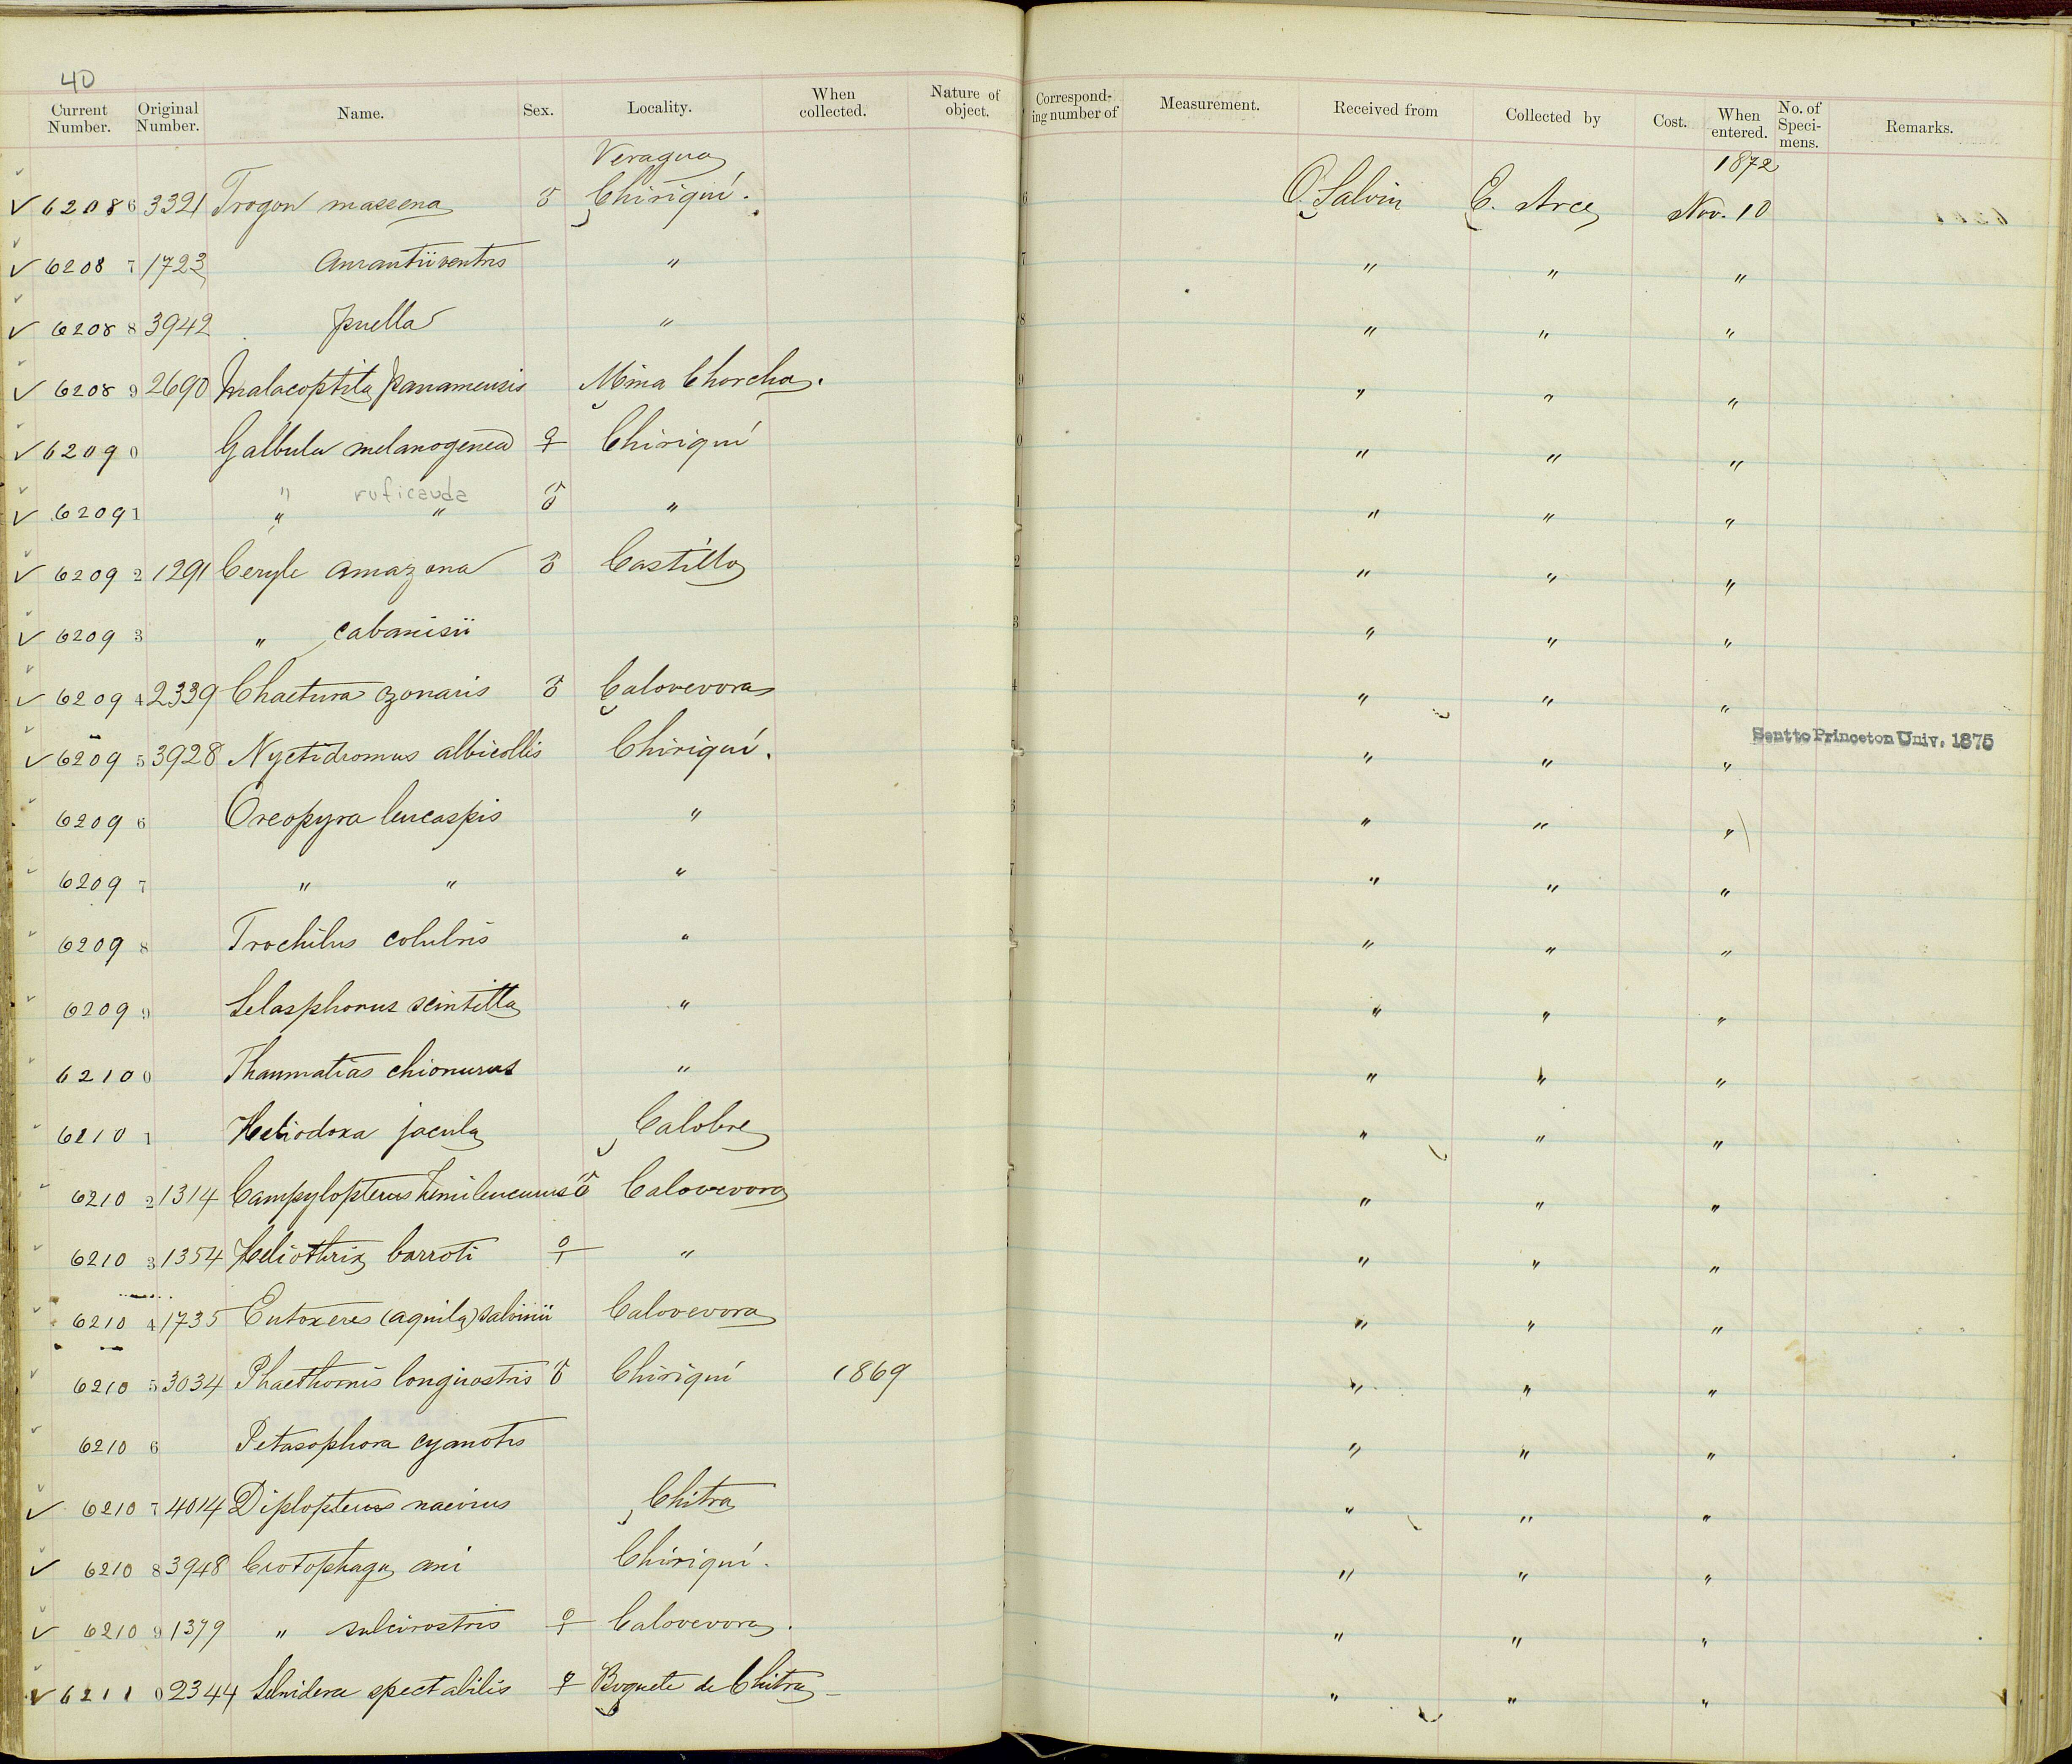 40
Current Number. Original Number. Name. Sex. Locality. When collected. Nature of object. Corresponding number of Measurement. Received from Collected by Cost. When entered. No. of Specimens. Remarks.
Veragua 1872
62086 3321 Trogon massena ♂ Chiriquí. 6 O. Salvin E. Arce Nov. 10
62087 1723 Aurantiiventris " 7 " " "
62088 3942 puella " 8 " " "
62089 2690 Malacoptila panamensis Mina Chorcha. 9 " " "
62090 Galbula melanogenea ♀ Chiriquí 0 " " "
" ruficauda
62091 " " ♂ " 1 " " "
62092 1291 Ceryle amazona ♂ Castillo 2 " " "
62093 " cabanisii 3 " " "
62094 2339 Chaetura zonaris ♂ Calovevora 4 " " "
Sent to Princeton Univ. 1875
62095 3928 Nyctidromus albicollis Chiriquí. 5 " " "
62096 Oreopyra leucaspis " 6 " " "
62097 " " " 7 " " "
62098 Trochilus colubris " " " "
62099 Selasphorus scintilla " " " "
62100 Thaumatias chionurus " " " "
62101 Heliodoxa jacula Calobre " " "
62102 1314 Campylopterus hemileucurus ♂ Calovevora " " "
62103 1354 Heliothrix barroti ♀ " " " "
62104 1735 Eutoxeres (aquila) salvinii Calovevora " " "
62105 3034 Phaethornis longirostris ♂ Chiriquí 1869 " " "
62106 Petasophora cyanotis " " "
62107 4014 Diplopterus naevius Chitra " " "
62108 3948 Crotophaga ani Chiriquí. " " "
62109 1379 " sulcirostris ♀ Calovevora. " " "
62110 2344 Selenidera spectabilis ♀ Boquete de Chitra " " "